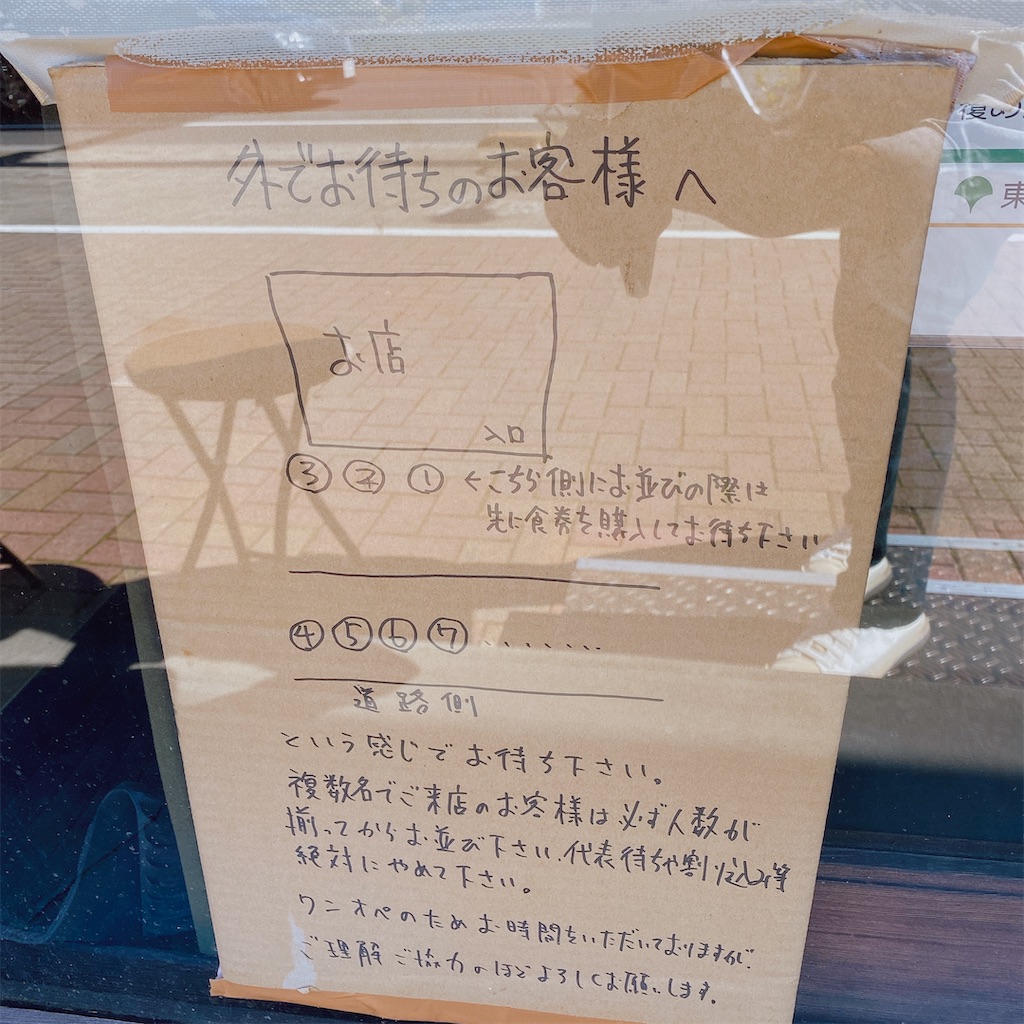 外でお待ちのお客様へ
お店
入口
③ ② ① ←こちら側にお並びの際は
先に食券を購入してお待ち下さい
④ ⑤ ⑥ ⑦ .......
道路側
という感じでお待ち下さい。
複数名でご来店のお客様は必ず人数が
揃ってからお並び下さい、代表待ちや割り込み等
絶対にやめて下さい。
ワンオペのためお時間をいただいておりますが、
ご理解ご協力のほどよろしくお願いします。
東